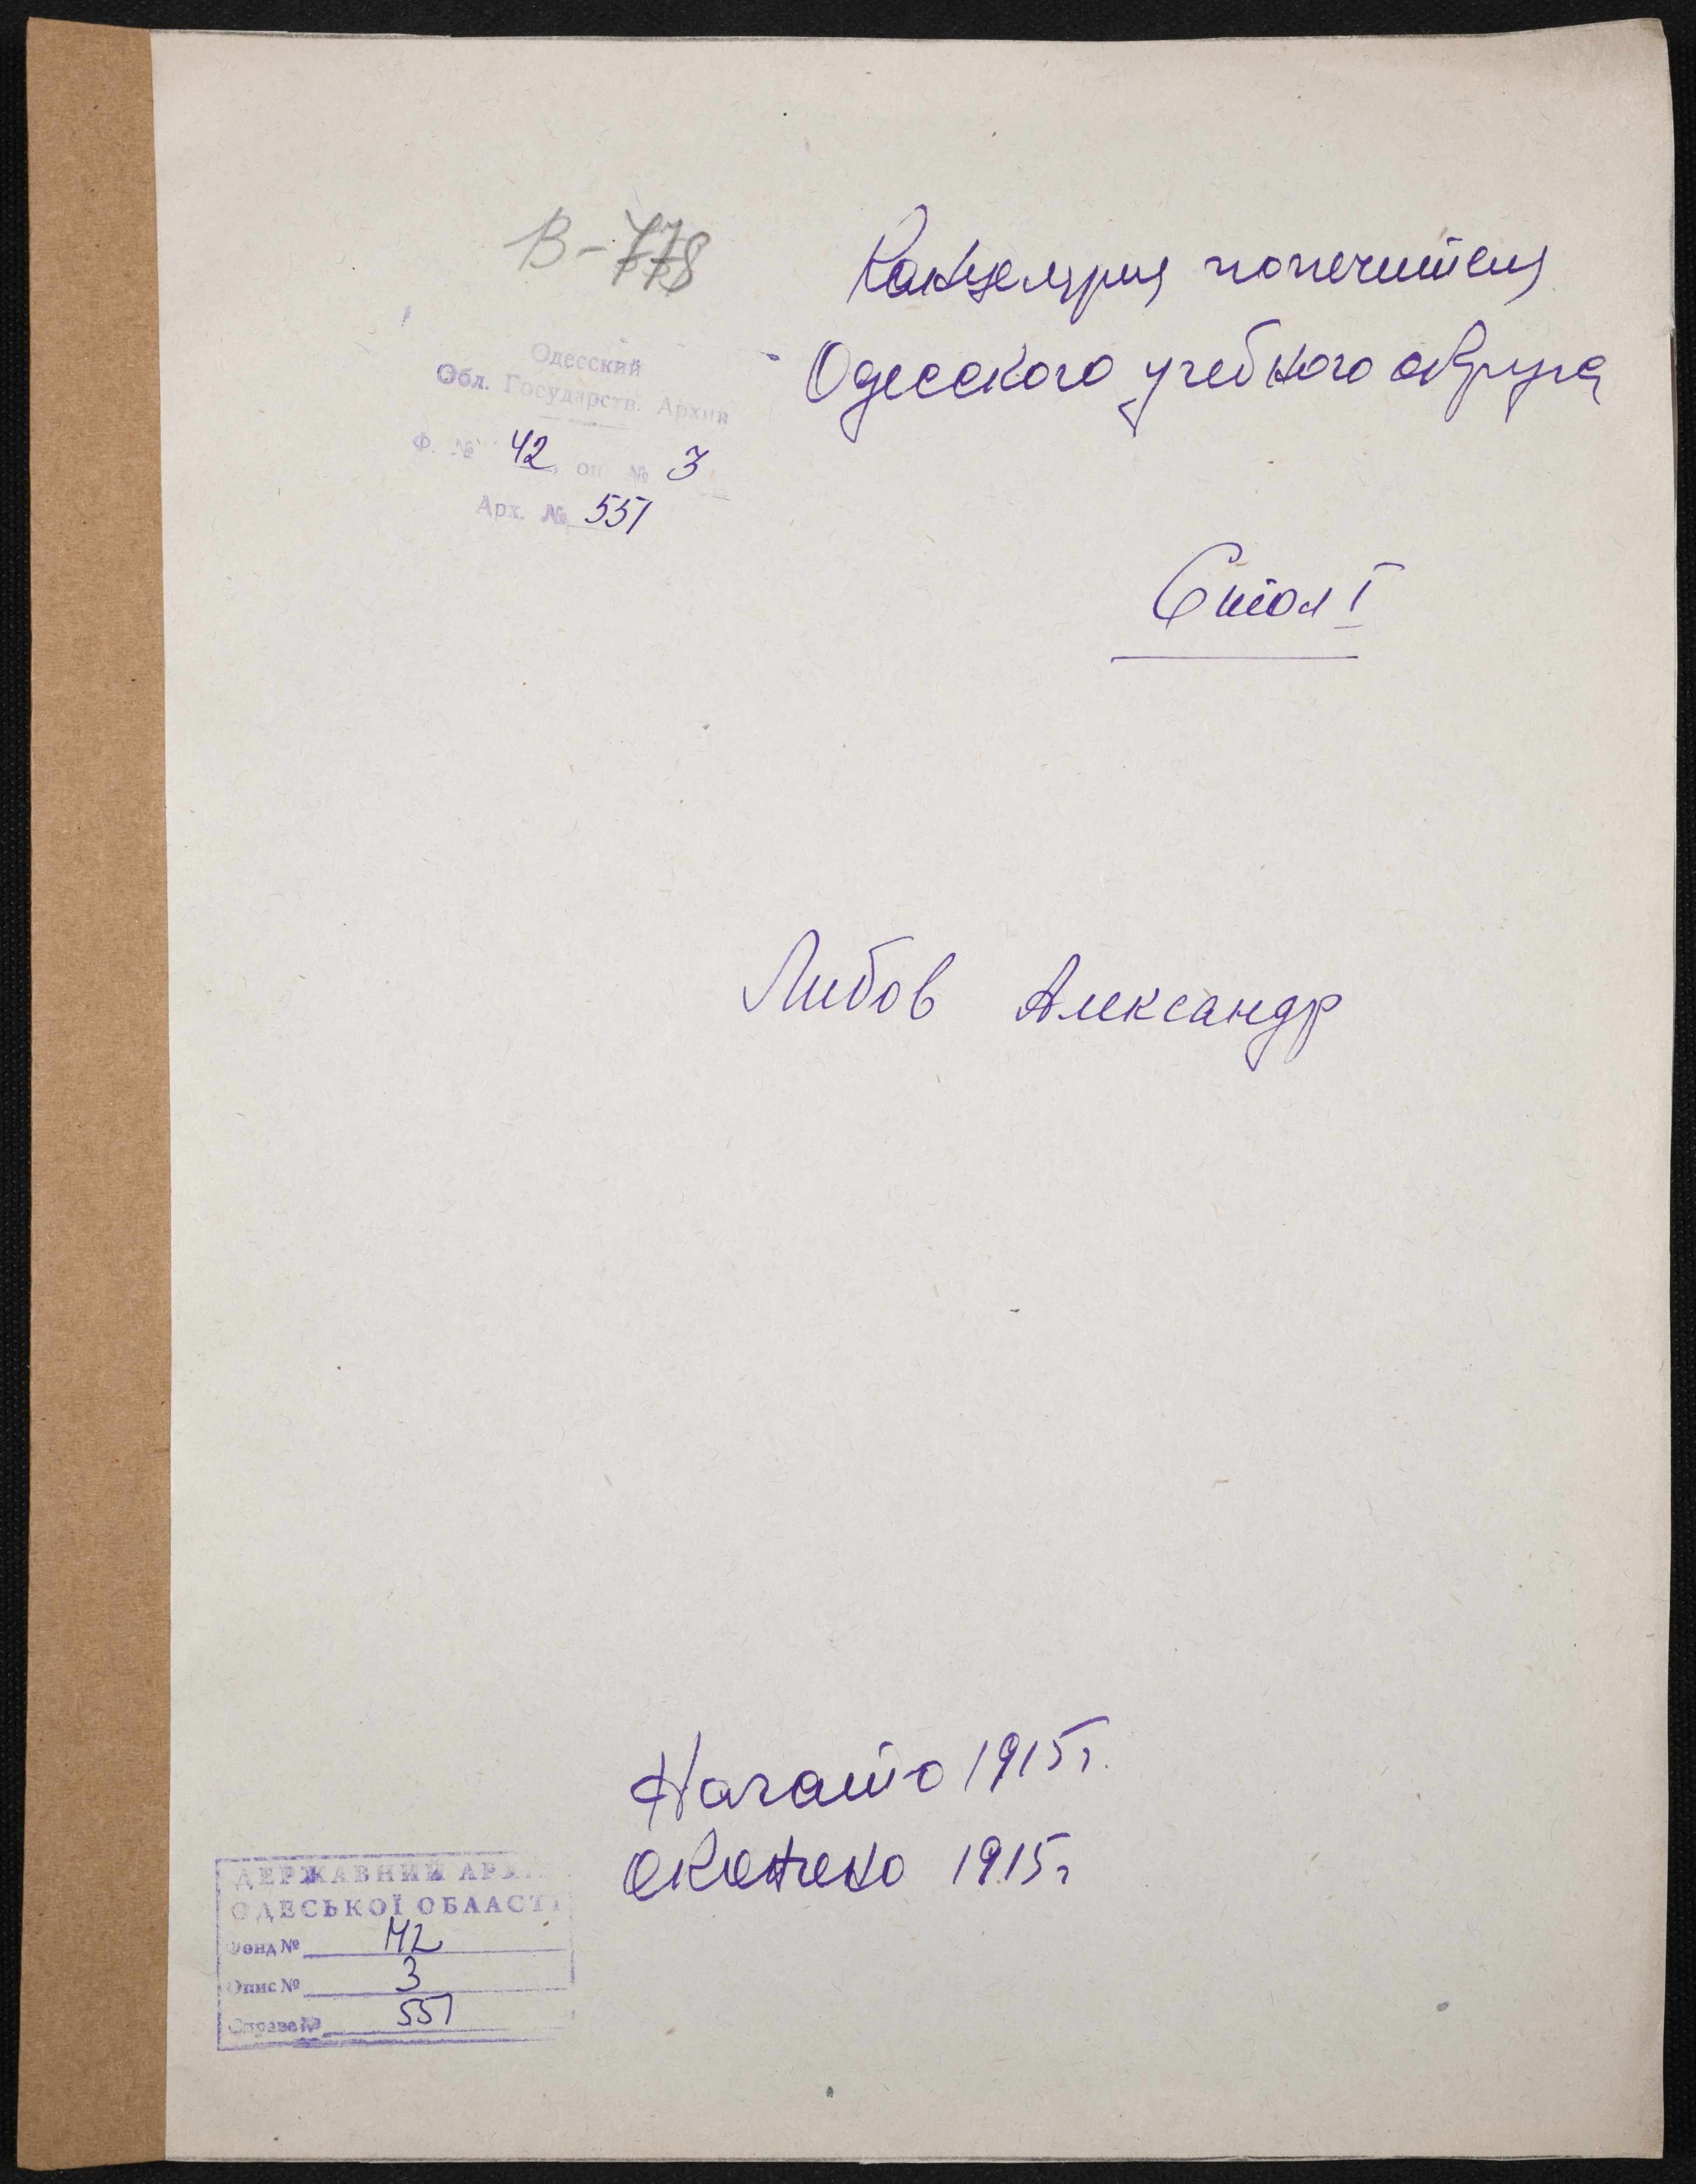 В-778
Канцелярия попечителя
Одесского учебного округа
Одесский
Обл. Государств. Архив
Ф. № 42, оп. № 3
Арх. № 551
Стол I
Либов Александр
Начато 1915 г.
Окончено 1915 г
ДЕРЖАВНИЙ АРХ
ОДЕСЬКОЇ ОБЛАСТІ
Фонд № 42
Опис № 3
Справа № 551